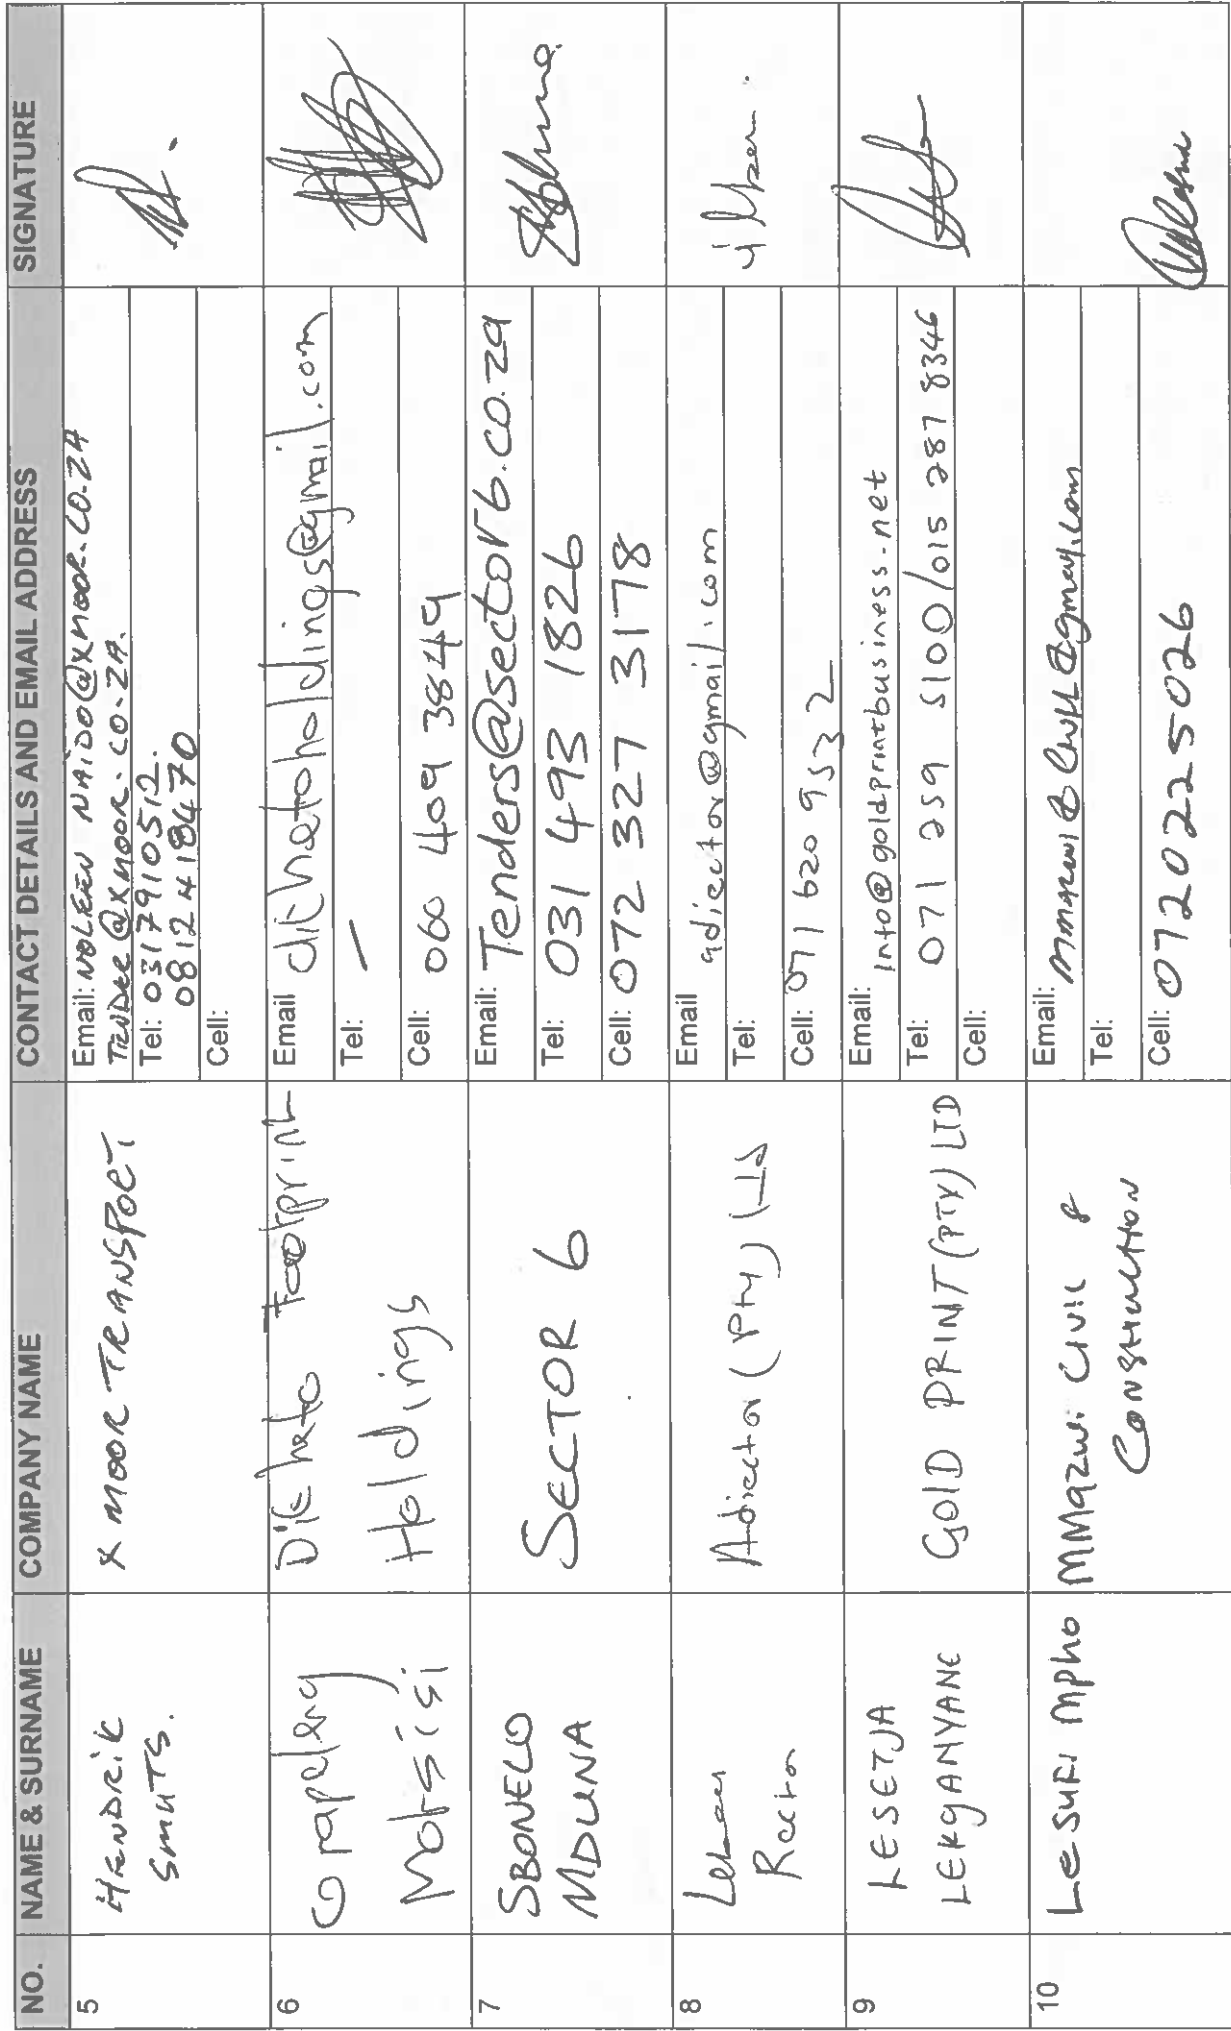 NO. NAME & SURNAME COMPANY NAME CONTACT DETAILS AND EMAIL ADDRESS SIGNATURE
5
HENDRIK
SMUTS.
X MOOR TRANSPORT
Email: NOLEEN NAIDO@XMOOR.CO.ZA
TENDER@XMOOR.CO.ZA.
Tel: 0317910512.
0812418670
Cell:
6
Orapeleng
Motsisi
Ditheto Footprint
Holdings
Email dithetoholdings@gmail.com
Tel: –
Cell: 060 409 3849
7
SBONELO
MDUNA
SECTOR 6
Email: Tenders@sector6.co.za
Tel: 031 493 1826
Cell: 072 327 3178
8
Rector
Adirector (Pty) Ltd
Email adirector@gmail.com
Tel:
Cell: 071 620 9532
9
LESETJA
LEKGANYANE
GOLD PRINT (PTY) LTD
Email: info@goldprintbusiness.net
Tel: 071 259 5100/015 287 8346
Cell:
10
Lesufi Mpho
MMazwi Civil &
Construction
Email:
Tel:
Cell: 0720225026